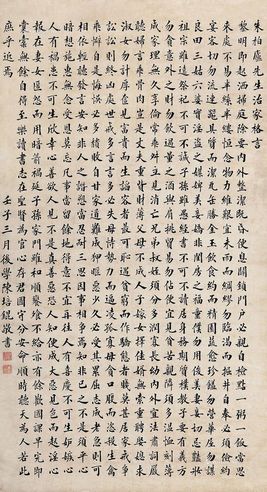 朱柏廬先生治家格言
黎明即起洒掃庭除要內外整潔既昏便息關鎖門戶必親自檢點一粥一飯當思
來處不易半絲半縷恆念物力維艱宜未雨而綢繆勿臨渴而掘井自奉必須儉約
宴客切勿流連器具質而潔瓦缶勝金玉飲食約而精園蔬愈珍饈勿營華屋勿謀
良田三姑六婆實淫盜之媒婢美妾嬌非閨房之福童僕勿用俊美妻妾切忌豔妝
宗祖雖遠祭祀不可不誠子孫雖愚經書不可不讀居身務期質樸教子要有義方
勿貪意外之財勿飲過量之酒與肩挑貿易勿佔便宜見貧苦親鄰須多溫恤刻薄
成家理無久享倫常乖舛立見消亡兄弟叔姪須分多潤寡長幼內外宜法肅辭嚴
聽婦言乖骨肉豈是丈夫重貲財薄父母不成人子嫁女擇佳婿無索重聘娶媳求
淑女勿計厚奩見富貴而生諂容者最可恥遇貧窮而作驕態者賤莫甚居家戒爭
訟訟則終凶處世戒多言言多必失毋恃勢力而凌逼孤寡毋貪口腹而恣殺生禽
乖僻自是悔誤必多頹惰自甘家道難成狎昵惡少久必受其累屈志老成急則可
相依輕聽發言安知非人之譖愬當忍耐三思因事相爭焉知非己之不是須平心
暗想施惠無念受恩莫忘凡事當留餘地得意不宜再往人有喜慶不可生妒嫉心
人有禍患不可生欣幸心善欲人見不是真善惡恐人知便是大惡見色而起淫心
報在妻女匿怨而用暗箭禍延子孫家門雖和順饔飧不給亦有餘歡國課早完即
囊橐無餘自得至樂讀書志在聖賢為官心存君國守分安命順時聽天為人若此
庶乎近焉
壬子三月後學陳培錕敬書